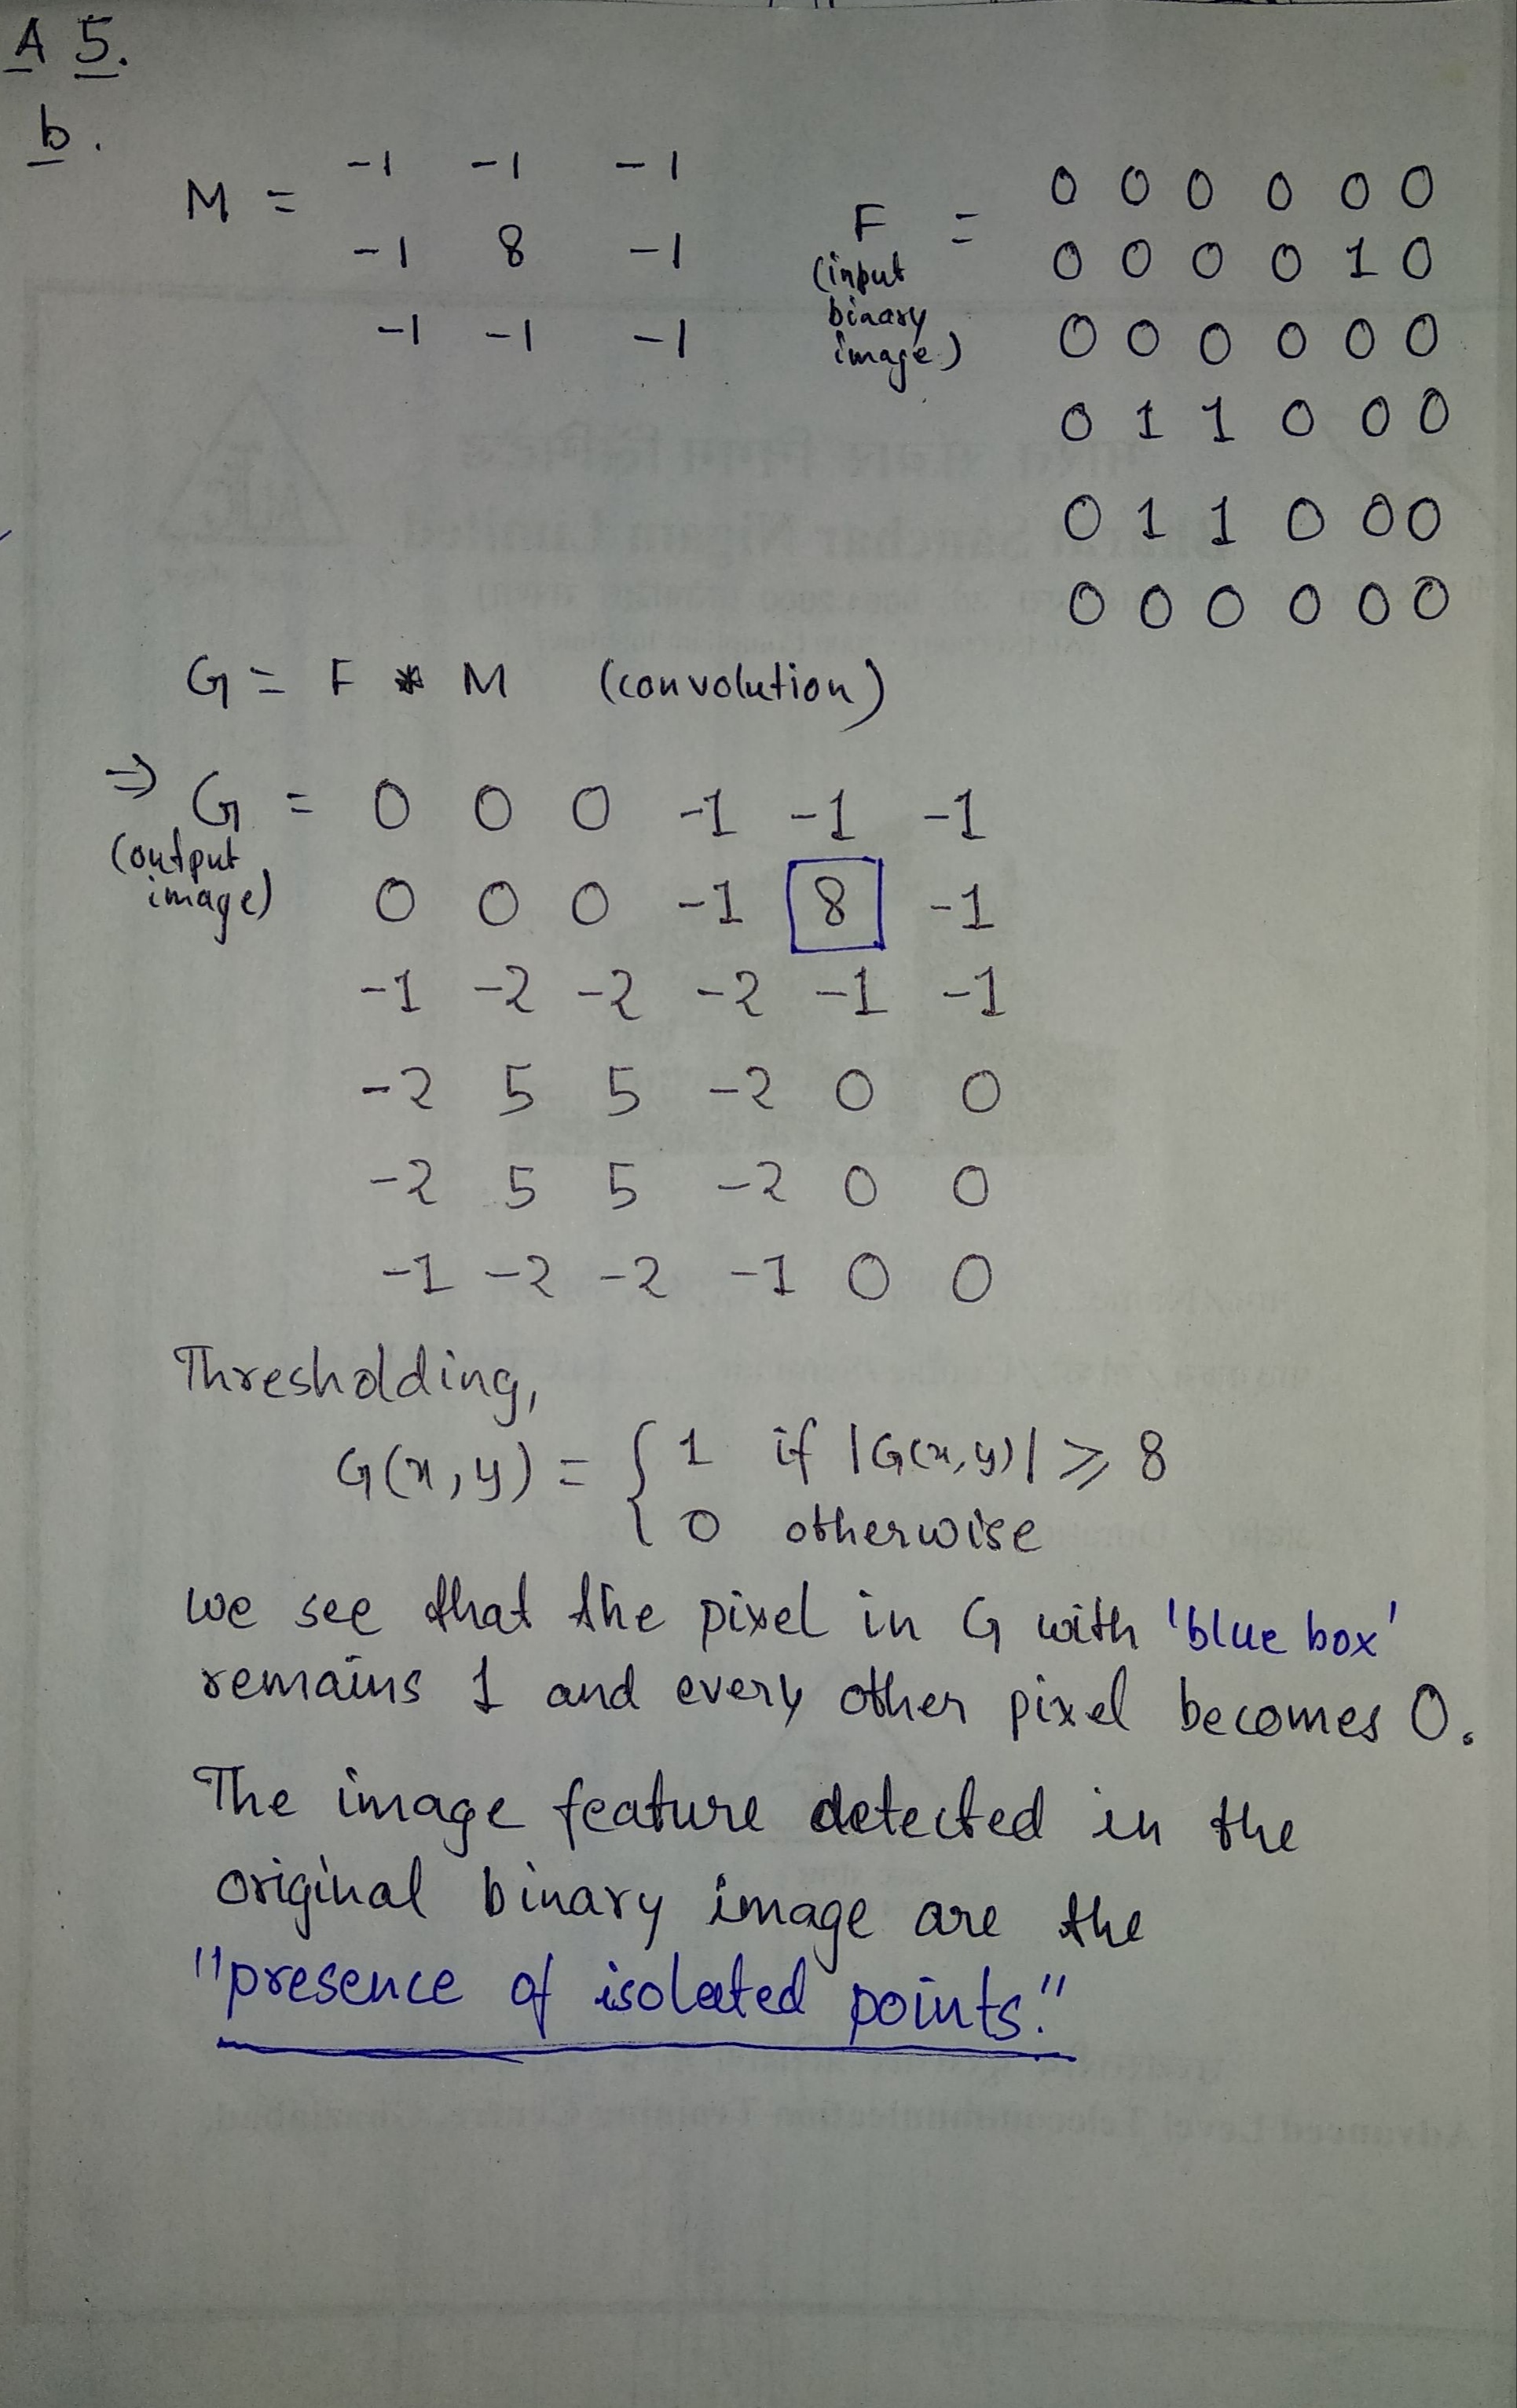 A 5.
b.
M = -1 -1 -1
-1 8 -1
-1 -1 -1
F = 0 0 0 0 0 0
(input 0 0 0 0 1 0
binary 0 0 0 0 0 0
image)
0 1 1 0 0 0
0 1 1 0 0 0
0 0 0 0 0 0
G = F * M (convolution)
⇒ G = 0 0 0 -1 -1 -1
(output
image) 0 0 0 -1 8 -1
-1 -2 -2 -2 -1 -1
-2 5 5 -2 0 0
-2 5 5 -2 0 0
-1 -2 -2 -1 0 0
Thresholding,
G(x,y) = { 1 if |G(x,y)| ≥ 8
0 otherwise
we see that the pixel in G with 'blue box'
remains 1 and every other pixel becomes 0.
The image feature detected in the
original binary image are the
"presence of isolated points."